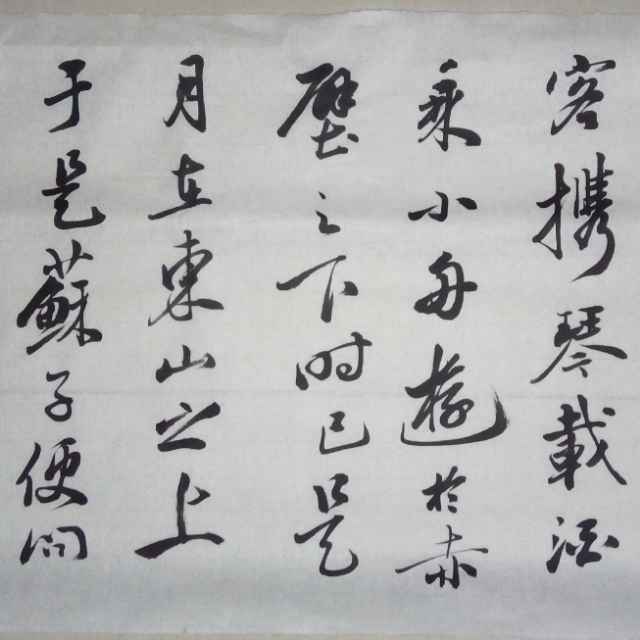 客携琴載酒
乘小舟遊於赤
壁之下时已是
月在東山之上
于是蘇子便问